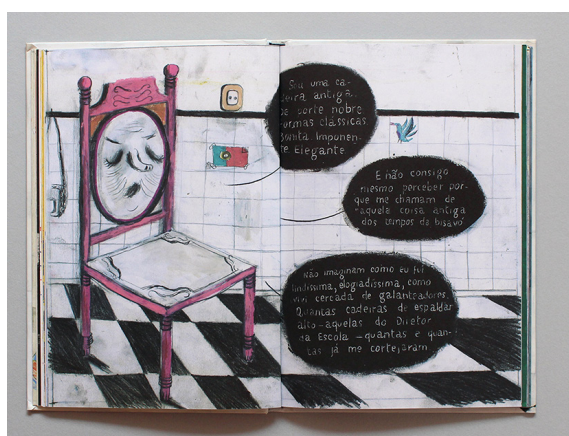 Sou uma ca-
deira antiga.
De porte nobre
formas clássicas.
Bonita. Imponen-
te. Elegante.
E não consigo
mesmo perceber por-
que me chamam de
"aquela coisa antiga
dos tempos da bisavó"
Não imaginam como eu fui
lindíssima, elogiadíssima, como
vivi cercada de galanteadores.
Quantas cadeiras de espaldar
alto - aquelas do Diretor
da Escola - quantas e quan-
tas já me cortejaram.